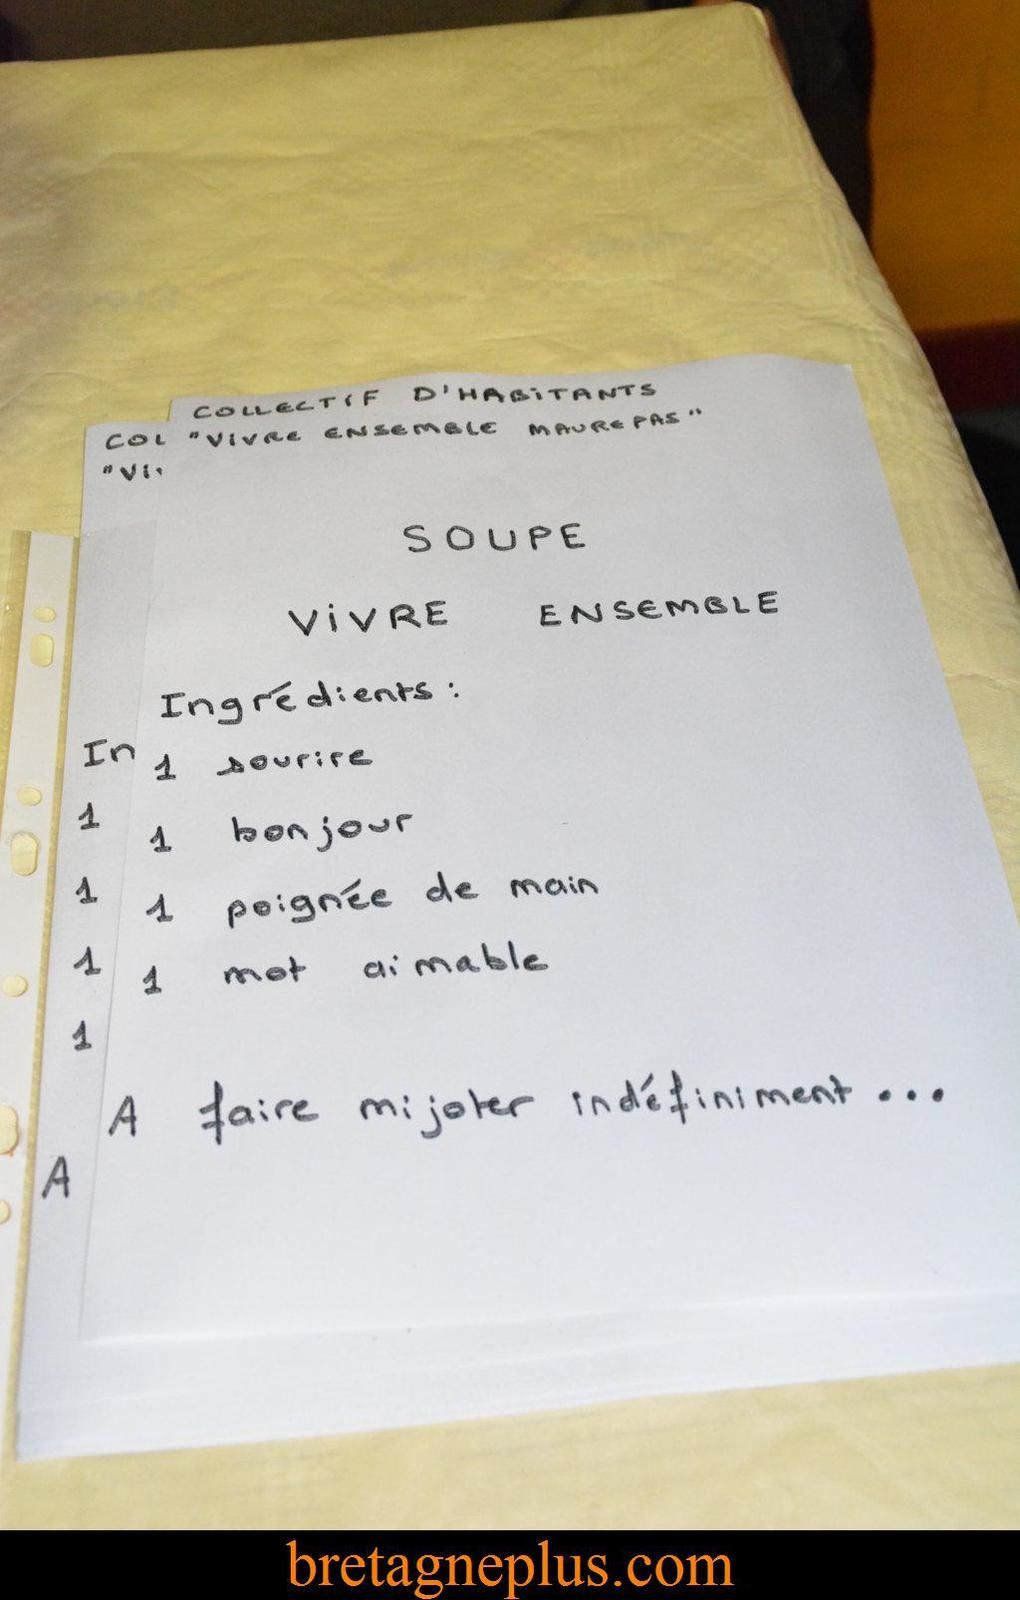 COLLECTIF D'HABITANTS
"VIVRE ENSEMBLE MAUREPAS"
SOUPE
VIVRE ENSEMBLE
Ingrédients :
1 sourire
1 bonjour
1 poignée de main
1 mot aimable
A faire mijoter indéfiniment ...
COL
"Vi
In
1
1
1
1
A
bretagneplus.com